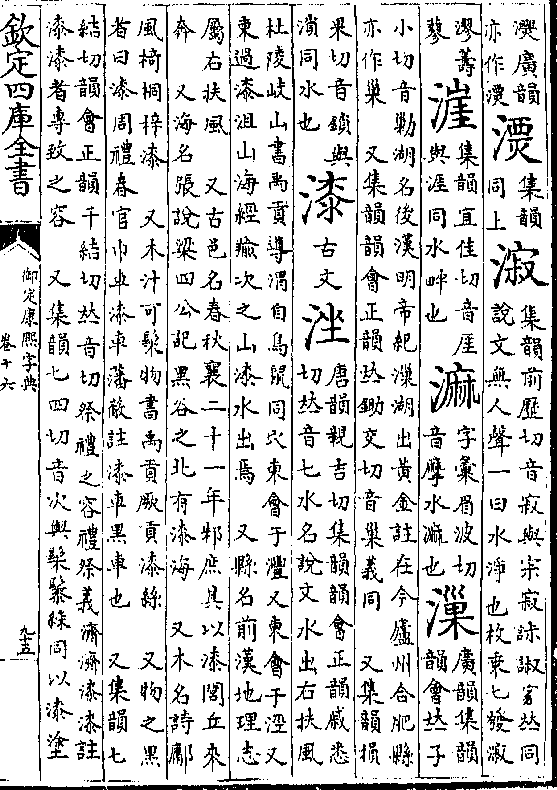 廣韻
亦作
集韻
同上
漃
集韻前歷切音寂與宋寂諔𠀤同
說文無人聲一曰水淨也枚乘七發漃
漻薵
蓼
漄
集韻宜佳切音厓
與涯同水畔也
㵋
字彙眉波切
音摩水㵋也
漅
廣韻集韻
韻會𠀤子
小切音勦湖名後漢明帝紀漅湖出黃金註在今廬州合肥縣
亦作巢　又集韻韻會正韻𠀤鋤交切音巢義同　又集韻損
果切音鎖與
溑同水也
漆
古文
㘸
唐韻親吉切集韻韻會正韻戚悉
切𠀤音七水名說文水出右扶風
杜陵岐山書禹貢導渭自鳥鼠同穴東會于灃又東會于涇又
東過漆沮山海經羭次之山漆水出焉　又縣名前漢地理志
屬右扶風　又古邑名春秋襄二十一年邾庶其以漆閭丘來
奔　又海名張說梁四公記黑谷之北有漆海　又木名詩鄘
風椅桐梓漆　又木汁可髹物書禹貢厥貢漆絲　又物之黑
者曰漆周禮春官巾車漆車藩蔽註漆車黑車也　又集韻七
結切韻會正韻千結切𠀤音切祭禮之容禮祭義濟濟漆漆註
漆漆者專致之容　又集韻七四切音次與髹同以漆塗
欽定四庫全書
御定康熙字典
卷十六
九五